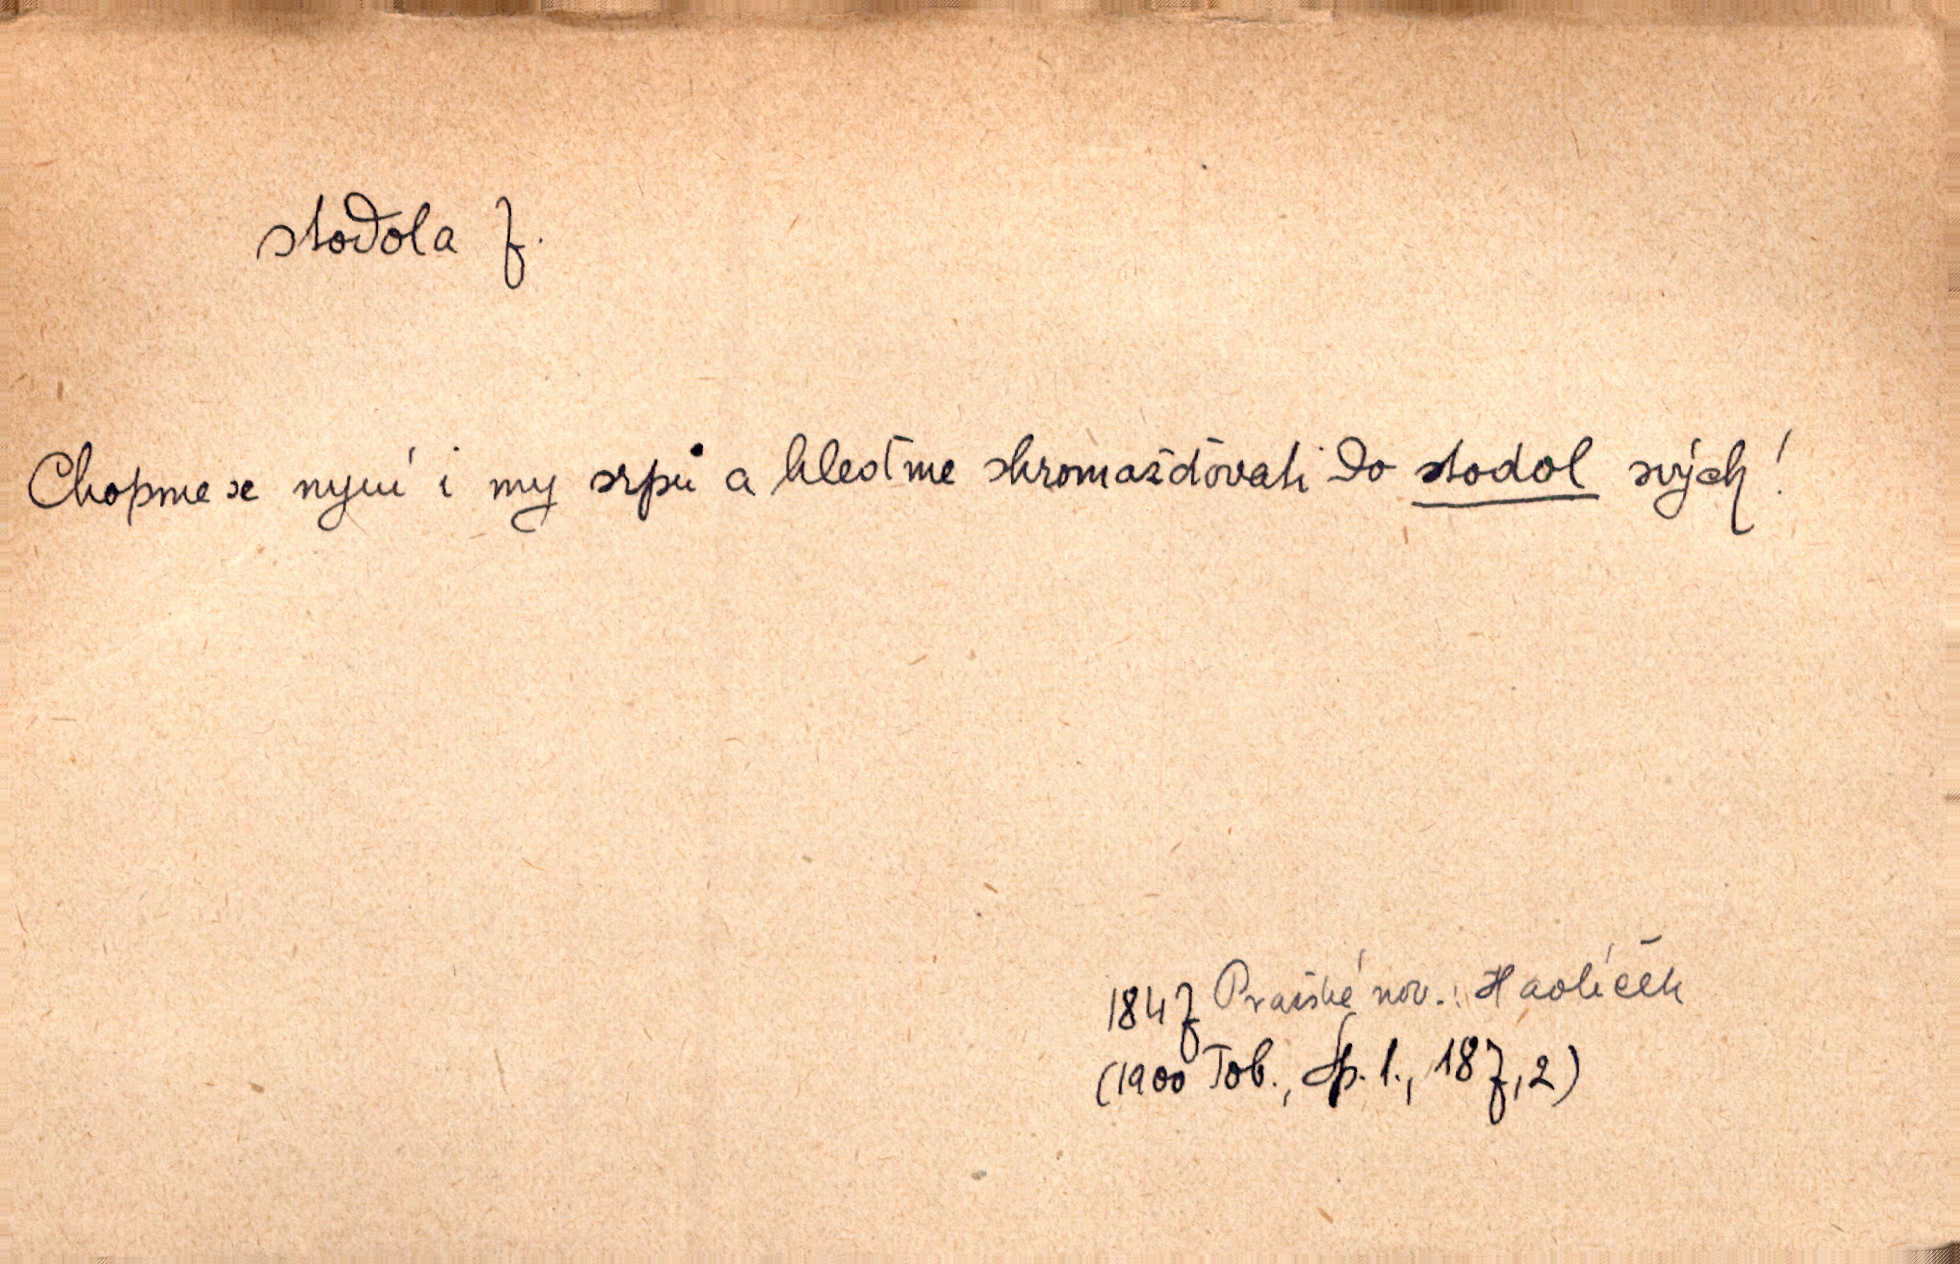 stodola f.
Chopme se nyní i my srpů a hleďme shromažďovati do stodol svých!
1847 Pražské nov.: Havlíček
(1900 Tob., Sp. 1., 187,2)